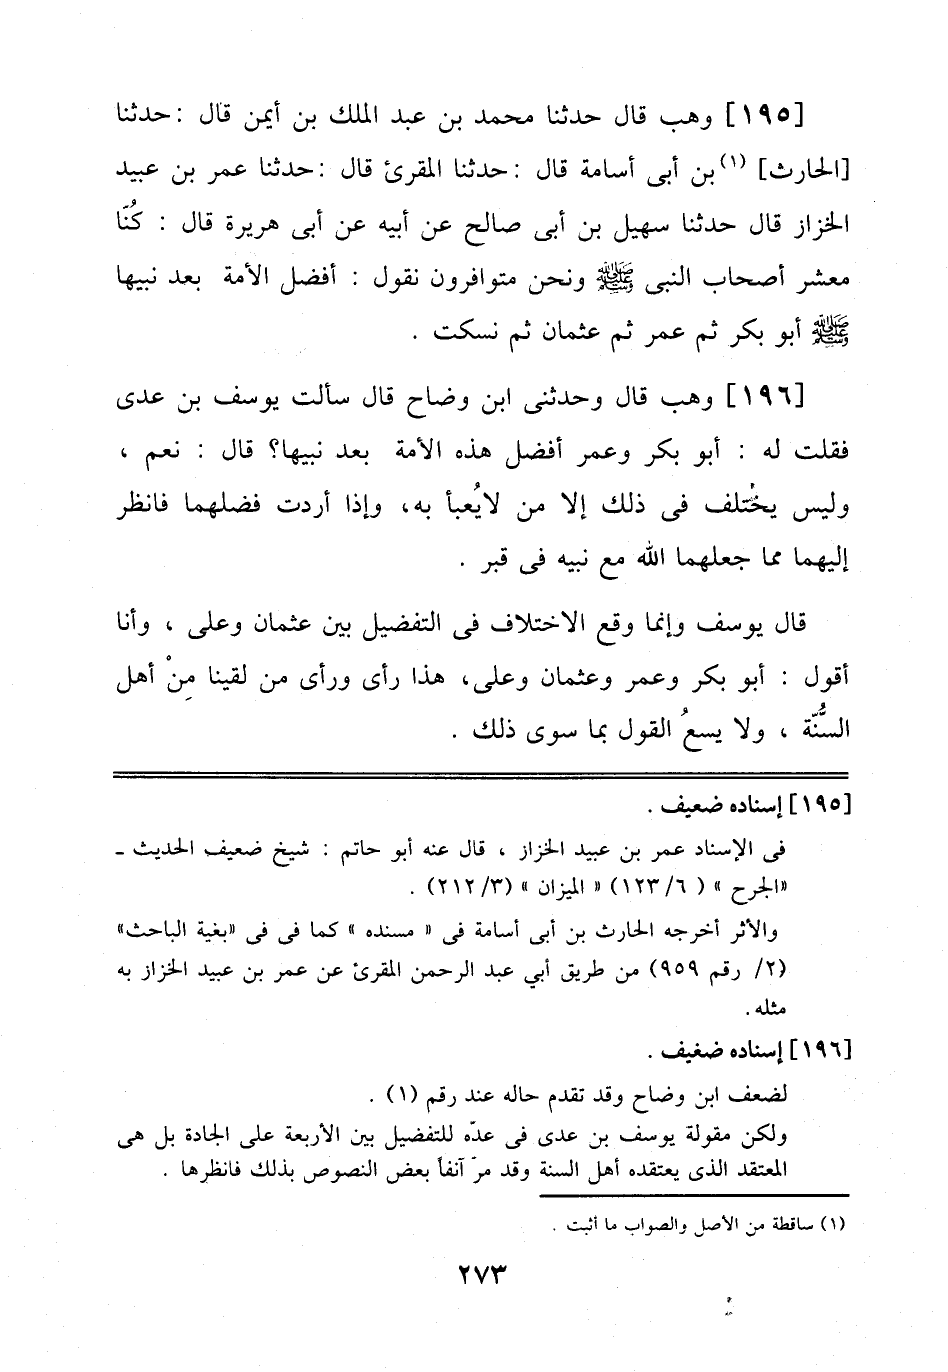 [١٩٥] وهب قال حدثنا محمد بن عبد الملك بن أيمن قال : حدثنا
[الحارث] (١) بن أبى أسامة قال : حدثنا المقرئ قال : حدثنا عمر بن عبيد
الخزاز قال حدثنا سهيل بن أبى صالح عن أبيه عن أبى هريرة قال : كُنّا
معشر أصحاب النبى ﷺ ونحن متوافرون نقول : أفضل الأمة بعد نبيها
ﷺ أبو بكر ثم عمر ثم عثمان ثم نسكت .
[١٩٦] وهب قال وحدثنى ابن وضاح قال سألت يوسف بن عدى
فقلت له : أبو بكر وعمر أفضل هذه الأمة بعد نبيها؟ قال : نعم ،
وليس يخُتلف فى ذلك إلا من لايُعبأ به، وإذا أردت فضلهما فانظر
إليهما مما جعلهما الله مع نبيه فى قبر .
قال يوسف وإنما وقع الاختلاف فى التفضيل بين عثمان وعلى ، وأنا
أقول : أبو بكر وعمر وعثمان وعلى، هذا رأى ورأى من لقينا مِنْ أهل
السُّنّة ، ولا يسعُ القول بما سوى ذلك .
[١٩٥] إسناده ضعيف .
فى الإسناد عمر بن عبيد الخزاز ، قال عنه أبو حاتم : شيخ ضعيف الحديث ـ
«الجرح » ( ٦/ ١٢٣) « الميزان » (٣/ ٢١٢) .
والأثر أخرجه الحارث بن أبى أسامة فى « مسنده » كما فى فى «بغية الباحث»
(٢/ رقم ٩٥٩) من طريق أبي عبد الرحمن المقرئ عن عمر بن عبيد الخزاز به
مثله .
[١٩٦] إسناده ضغيف .
لضعف ابن وضاح وقد تقدم حاله عند رقم (١) .
ولكن مقولة يوسف بن عدى فى عدّه للتفضيل بين الأربعة على الجادة بل هى
المعتقد الذى يعتقده أهل السنة وقد مرّ آنفاً بعض النصوص بذلك فانظرها .
(١) ساقطة من الأصل والصواب ما أثبت .
٢٧٣